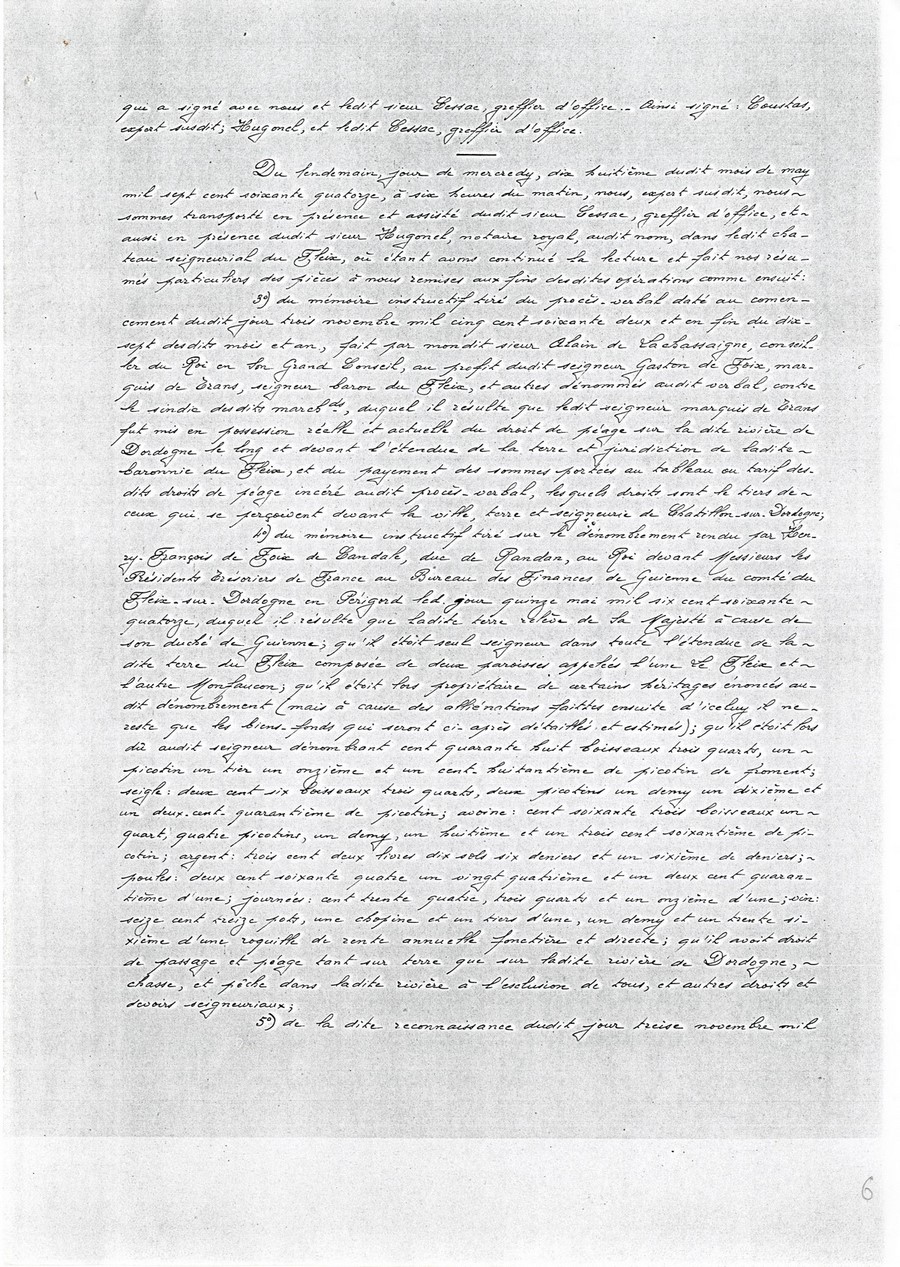 qui a signé avec nous et ledit sieur Cessac, greffier d'office.- Ainsi signé : Coustas,
expert susdit; Hugonel, et ledit Cessac, greffier d'office.
Du lendemain, jour de mercredy, dix huitième dudit mois de may
mil sept cent soixante quatorze, à six heures du matin, nous, expert susdit, nous ~
sommes transporté en présence et assisté dudit sieur Cessac, greffier d'office, et ~
aussi en présence dudit sieur Hugonel, notaire royal, audit nom, dans ledit cha-
teau seigneurial du Fleix, où étant avons continué la lecture et fait nos résu-
més particuliers des pièces à nous remises aux fins desdites opérations comme ensuit:
3°) du mémoire instructif tiré du procès-verbal daté au comen-
cement dudit jour trois novembre mil cinq cent soixante deux et en fin du dix-
sept desdits mois et an, fait par mondit sieur Alain de Lachassaigne, conseil-
ler du Roi en son Grand Conseil, au profit dudit seigneur Gaston de Foix, mar-
quis de Trans, seigneur baron du Fleix, et autres dénommés audit verbal, contre
le sindic desdits march.ds, duquel il résulte que ledit seigneur marquis de Trans
fut mis en possession réelle et actuelle du droit de péage sur la dite rivière de
Dordogne le long et devant l'étendue de la terre et juridiction de ladite ~
baronnie du Fleix, et du payement des sommes portées au tableau ou tarif des-
dits droits de péage incéré audit procès-verbal, lesquels droits sont le tiers de ~
ceux qui se perçoivent devant la ville, terre et seigneurie de Chatillon-sur-Dordogne;
4°) du mémoire instructif tiré sur le dénombrement rendu par Hen-
ry-François de Foix de Candale, duc de Randan, au Roi devant Messieurs les
Présidents Trésoriers de France au Bureau des Finances de Guienne du comté du
Fleix-sur-Dordogne en Périgord led. jour quinze mai mil six cent soixante ~
quatorze, duquel il résulte que ladite terre relève de Sa Majesté à cause de
son duché de Guienne; qu'il étoit seul seigneur dans toute l'étendue de la-
dite terre du Fleix composée de deux paroisses appelés l'une Le Fleix et ~
l'autre Monfaucon; qu'il étoit lors propriétaire de certains héritages énoncés au-
dit dénombrement (mais à cause des alliénations faittes ensuite d'iceluy il ne ~
reste que les biens-fonds qui seront ci-après détaillés et estimés); qu'il étoit lors
dû audit seigneur dénombrant cent quarante huit boisseaux trois quarts, un ~
picotin un tier un onzième et un cent-huitantième de picotin de froment;
seigle: deux cent six boisseaux trois quarts, deux picotins un demy un dixième et
un deux-cent-quarantième de picotin; avoine: cent soixante trois boisseaux un ~
quart, quatre picotins, un demy, un huitième et un trois cent soixantième de pi-
cotin; argent: trois cent deux livres dix sols six deniers et un sixième de deniers; ~
poules: deux cent soixante quatre un vingt quatrième et un deux cent quaran-
tième d'une; journées: cent trente quatre, trois quarts et un onzième d'une; vin:
seize cent treize pots, une chopine et un tiers d'une, un demy et un trente si-
xième d'une roquille de rente annuelle foncière et directe; qu'il avoit droit
de passage et péage tant sur terre que sur ladite rivière de Dordogne, ~
chasse, et pêche dans ladite rivière à l'esclusion de tous, et autres droits et
devoirs seigneuriaux;
5°) de la dite reconnaissance dudit jour treise novembre mil
6